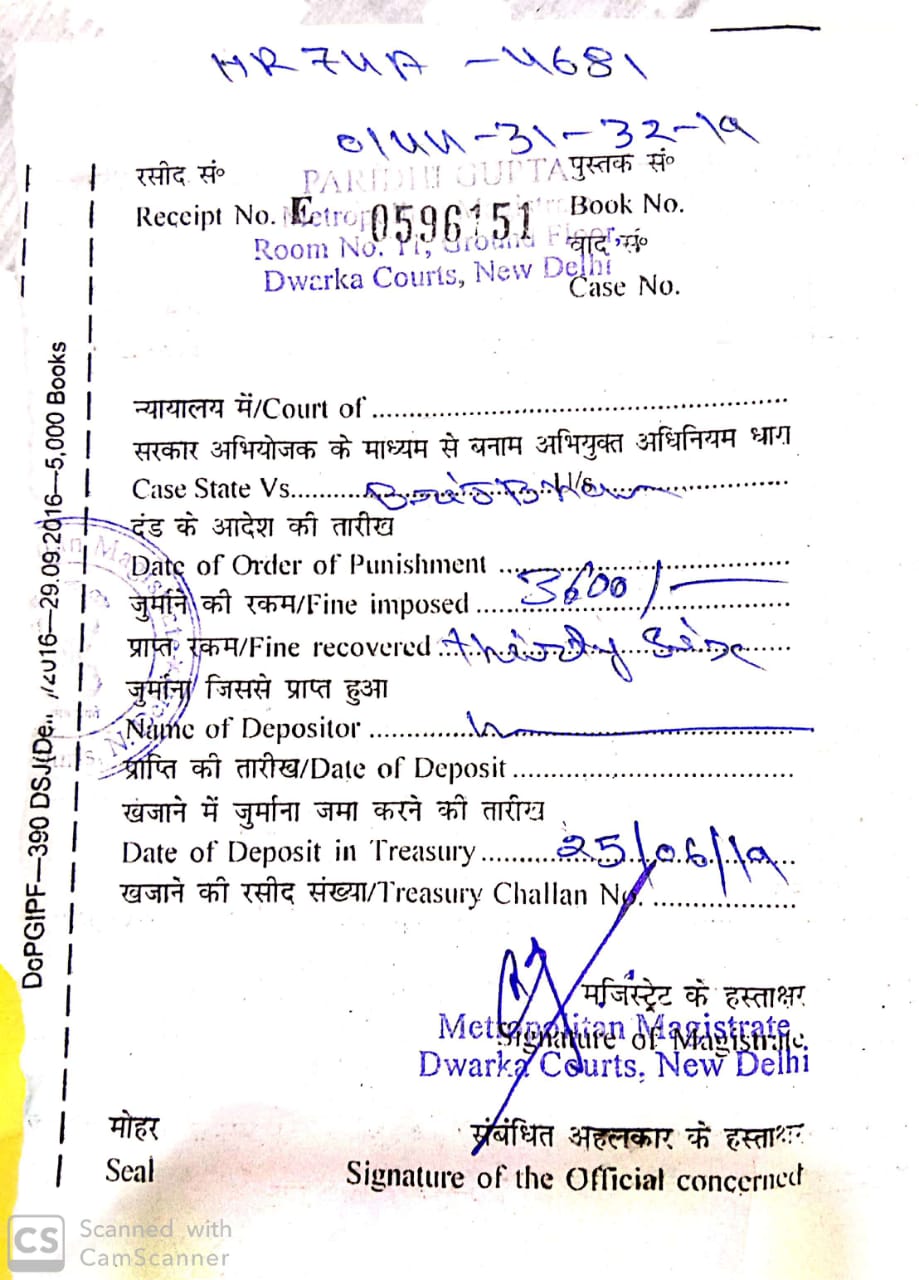 HR74A - 4681
0144-31-32-19
रसीद सं०
पुस्तक सं०
PARIDHI GUPTA
Receipt No. E 0596151
Book No.
Room No. 11, Ground Floor,
वाद सं०
Dwarka Courts, New Delhi
Case No.
न्यायालय में/Court of
सरकार अभियोजक के माध्यम से बनाम अभियुक्त अधिनियम धारा
Case State Vs. U/s
दंड के आदेश की तारीख
Date of Order of Punishment
जुर्माने की रकम/Fine imposed 3600/-
प्राप्त रकम/Fine recovered
जुर्माना जिससे प्राप्त हुआ
Name of Depositor
प्राप्ति की तारीख/Date of Deposit
खजाने में जुर्माना जमा करने की तारीख
Date of Deposit in Treasury 25/06/19
खजाने की रसीद संख्या/Treasury Challan No.
मजिस्ट्रेट के हस्ताक्षर
Signature of Magistrate
Metropolitan Magistrate
Dwarka Courts, New Delhi
मोहर
संबंधित अहलकार के हस्ताक्षर
Seal
Signature of the Official concerned
DoPGIPF—390 DSJ(De.. /2016—29.09.2016—5,000 Books
CS Scanned with
CamScanner